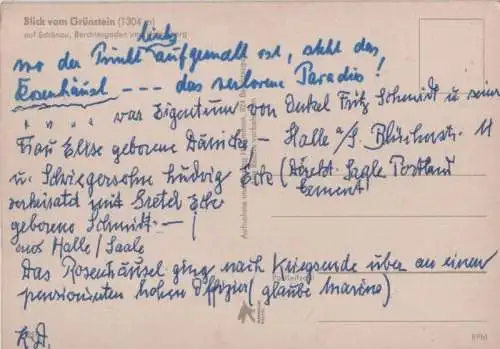 Blick vom Grünstein (1304 m)
auf Schönau, Berchtesgaden und
links
wo der Punkt aufgemalt ist, steht das
Rosenhäusl --- das verlorene Paradies!
" " war Eigentum von Onkel Fritz Schmidt u. seiner
Frau Elise geborene Dänicke - Halle a/S. Blücherstr. 11
u. Schwiegersohn Ludwig Ecke (Direkt. Saale Portland
verheiratet mit Gretel Ecke Cement)
geborene Schmidt -
aus Halle/Saale
Das Rosenhäusel ging nach Kriegsende über an einen
pensionierten hohen Offizier (glaube Marine)